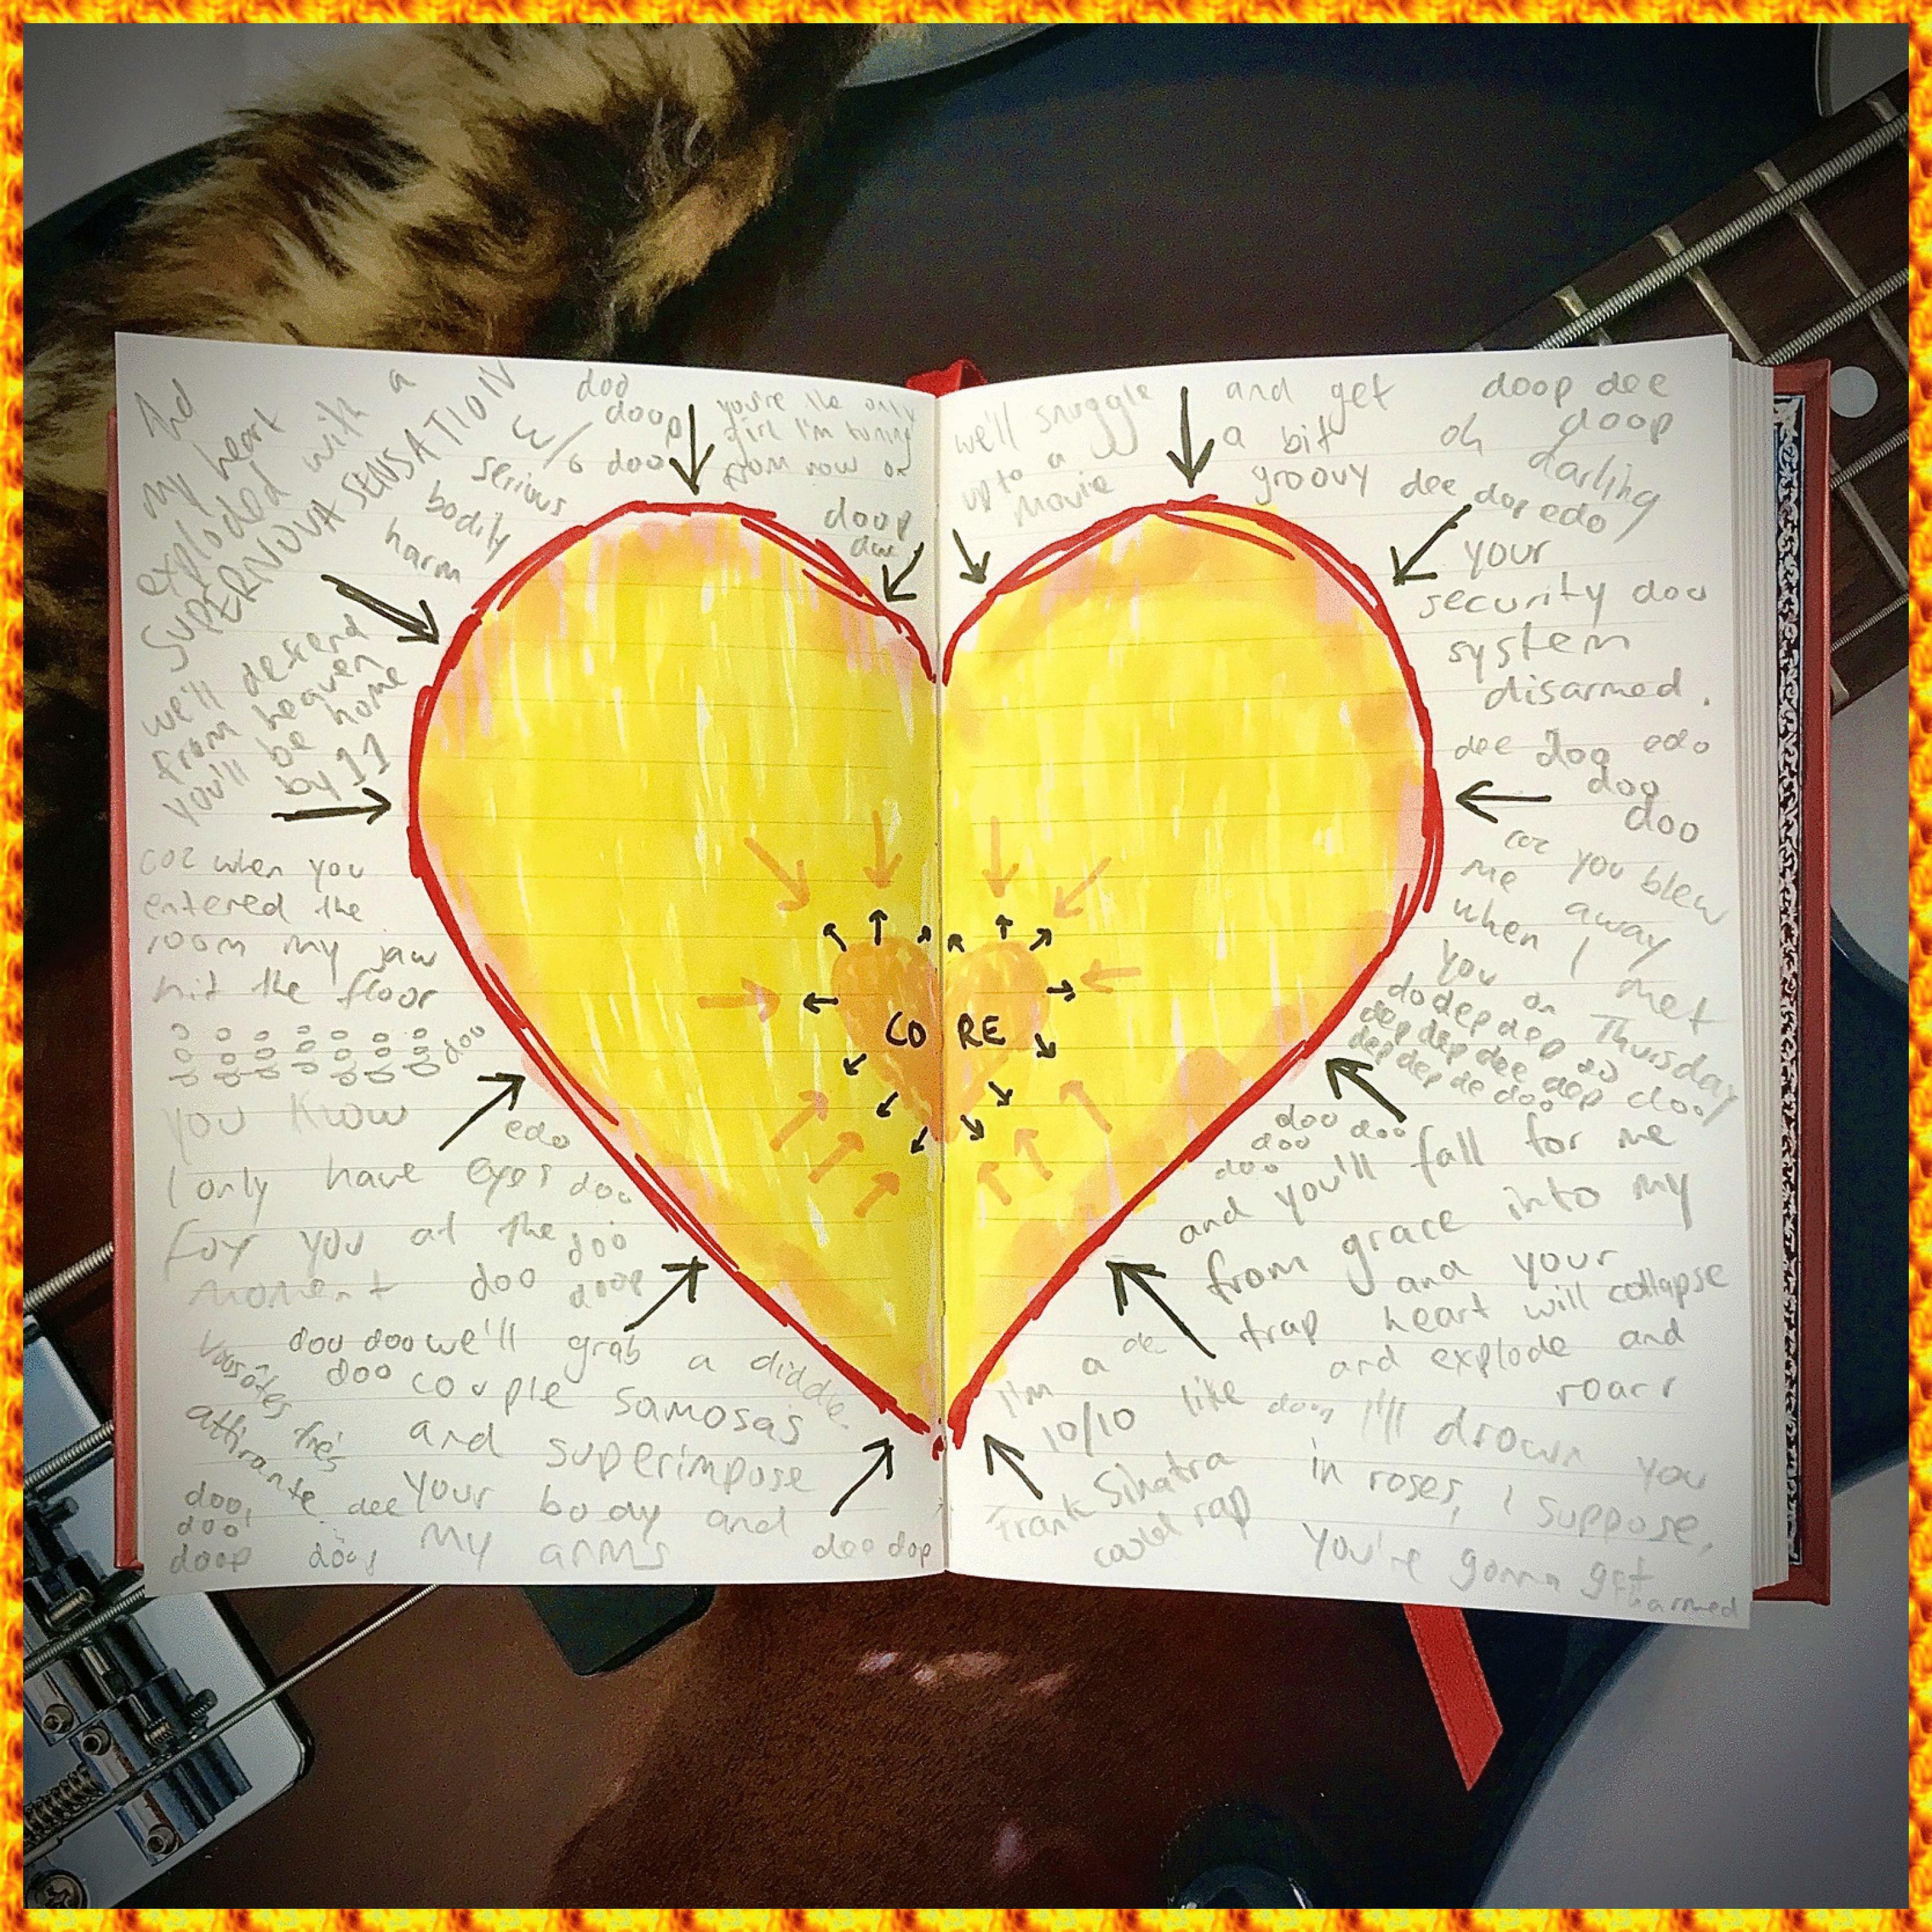 And
my heart
exploded with a
SUPERNOVA SENSATION
w/ a
serious
bodily
harm
doo
doop
doo
you're the only
girl I'm tuning
from now on
doop
dee
we'll descend
from heaven
you'll be home
by 11
coz when you
entered the
room my jaw
hit the floor
doo
you know
edo
I only have eyes doo
for you at the doo
moment doo doop
doo doo we'll grab a diddle
doo couple samosas
and superimpose
your body and
my arms
Vous êtes très
attirante
doo
doo
doop
dee
doo
dee dop
CORE
we'll snuggle
up to a
movie
and get
a bit
groovy
doop dee
doop
oh darling
dee dop edo
your
security doo
system
disarmed.
dee doo edo
doo
doo
coz you blew
me away
when I met
you on Thursday
do dep dep do doo
dep dep dee dep
dep dep de doo
doo doo
doo
doo
and you'll fall for me
from grace into my
trap
and your
heart will collapse
and explode and
roarr
I'm a de
10/10 like
Frank Sinatra
could rap
I'll drown you
in roses, I suppose,
you're gonna get
harmed